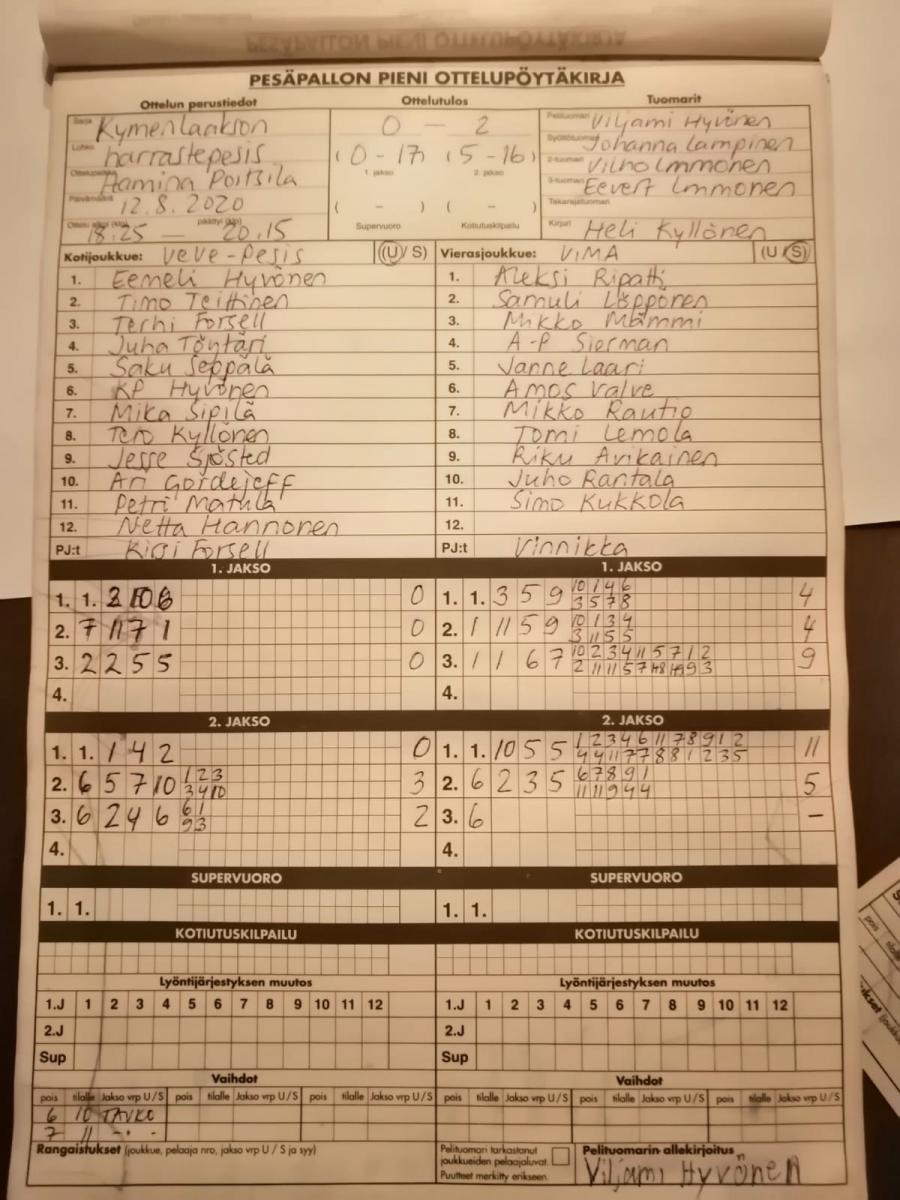 PESÄPALLON PIENI OTTELUPÖYTÄKIRJA
Ottelun perustiedot Ottelutulos Tuomarit
Sarja Kymenlaakson 0 — 2 Pelituomari Viljami Hyvönen
Lohko harrastepesis (0-17) (5-16) Syöttötuomari Johanna Lampinen
1. jakso 2. jakso 2-tuomari Vilho Immonen
Ottelupaikka Hamina Poitsila 3-tuomari Eevert Immonen
Päivämäärä 12.8.2020 ( - ) ( - ) Takarajatuomari
Ottelu alkoi (klo) 18:25 — päättyi (klo) 20.15 Supervuoro Kotiutuskilpailu Kirjuri Heli Kyllönen
Kotijoukkue: VeVe-Pesis (U/S) Vierasjoukkue: ViMA (U/S)
1. Eemeli Hyvönen 1. Aleksi Ripatti
2. Timo Teittinen 2. Samuli Löppönen
3. Terhi Forsell 3. Mikko Mämmi
4. Juha Töytäri 4. A-P Sierman
5. Saku Seppälä 5. Janne Laari
6. KP Hyvönen 6. Amos Valve
7. Mika Sipilä 7. Mikko Rautio
8. Tero Kyllönen 8. Tomi Lemola
9. Jesse Sjösted 9. Riku Avikainen
10. Ari Gordejeff 10. Juho Rantala
11. Petri Matula 11. Simo Kukkola
12. Netta Hannonen 12.
PJ:t Kirsi Forsell PJ:t Vinnikka
1. JAKSO 1. JAKSO
1. 1. 2 10 6 0 1. 1. 3 5 9 10 1 4 6 4
3 5 7 8
2. 7 11 7 1 0 2. 1 11 5 9 10 1 3 4 4
3 11 5 5
3. 2 2 5 5 0 3. 1 1 6 7 10 2 3 4 11 5 7 1 2 9
2 11 11 5 7 9 3
4. 4.
2. JAKSO 2. JAKSO
1. 1. 1 4 2 0 1. 1. 10 5 5 1 2 3 4 6 11 7 8 9 1 2 11
4 4 11 7 7 8 8 1 2 3 5
2. 6 5 7 10 1 2 3 3 2. 6 2 3 5 6 7 8 9 1 5
3 4 10 11 11 9 4 4
3. 6 2 4 6 6 1 2 3. 6 –
9 3
4. 4.
SUPERVUORO SUPERVUORO
1. 1. 1. 1.
KOTIUTUSKILPAILU KOTIUTUSKILPAILU
Lyöntijärjestyksen muutos Lyöntijärjestyksen muutos
1.J 1 2 3 4 5 6 7 8 9 10 11 12 1.J 1 2 3 4 5 6 7 8 9 10 11 12
2.J 2.J
Sup Sup
Vaihdot Vaihdot
pois tilalle Jakso vrp U/S pois tilalle Jakso vrp U/S pois tilalle Jakso vrp U/S pois tilalle Jakso vrp U/S pois tilalle Jakso vrp U/S pois tilalle Jakso vrp U/S
6 10 TAUKO
7 11 - " -
Rangaistukset (joukkue, pelaaja nro, jakso vrp U/S ja syy) Pelituomari tarkastanut joukkueiden pelaajaluvat. Pelituomarin allekirjoitus
Puutteet merkitty erikseen. Viljami Hyvönen